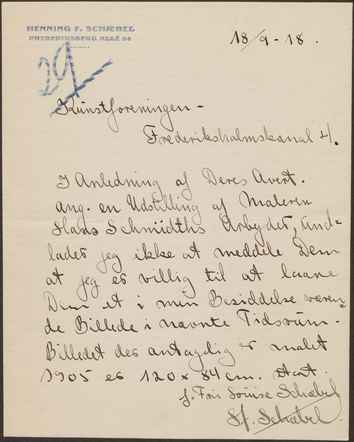 HENNING F. SCHÆBEL
FREDERIKSBERG ALLÉ
29
18/9-18.
Kunstforeningen-
Frederiksholmskanal 4/.
I Anledning af Deres Avert.
ang. en Udstilling af Maleren
Hans Schmidths Arbejder, und-
lader jeg ikke at meddele Dem
at jeg er villig til at laane
Dem et i min Besiddelse væren-
de Billede i nævnte Tidsrum.
Billedet der antagelig er malet
1905 er 120 x 84 cm.
f. Frú Louise Schæbel
Schæbel